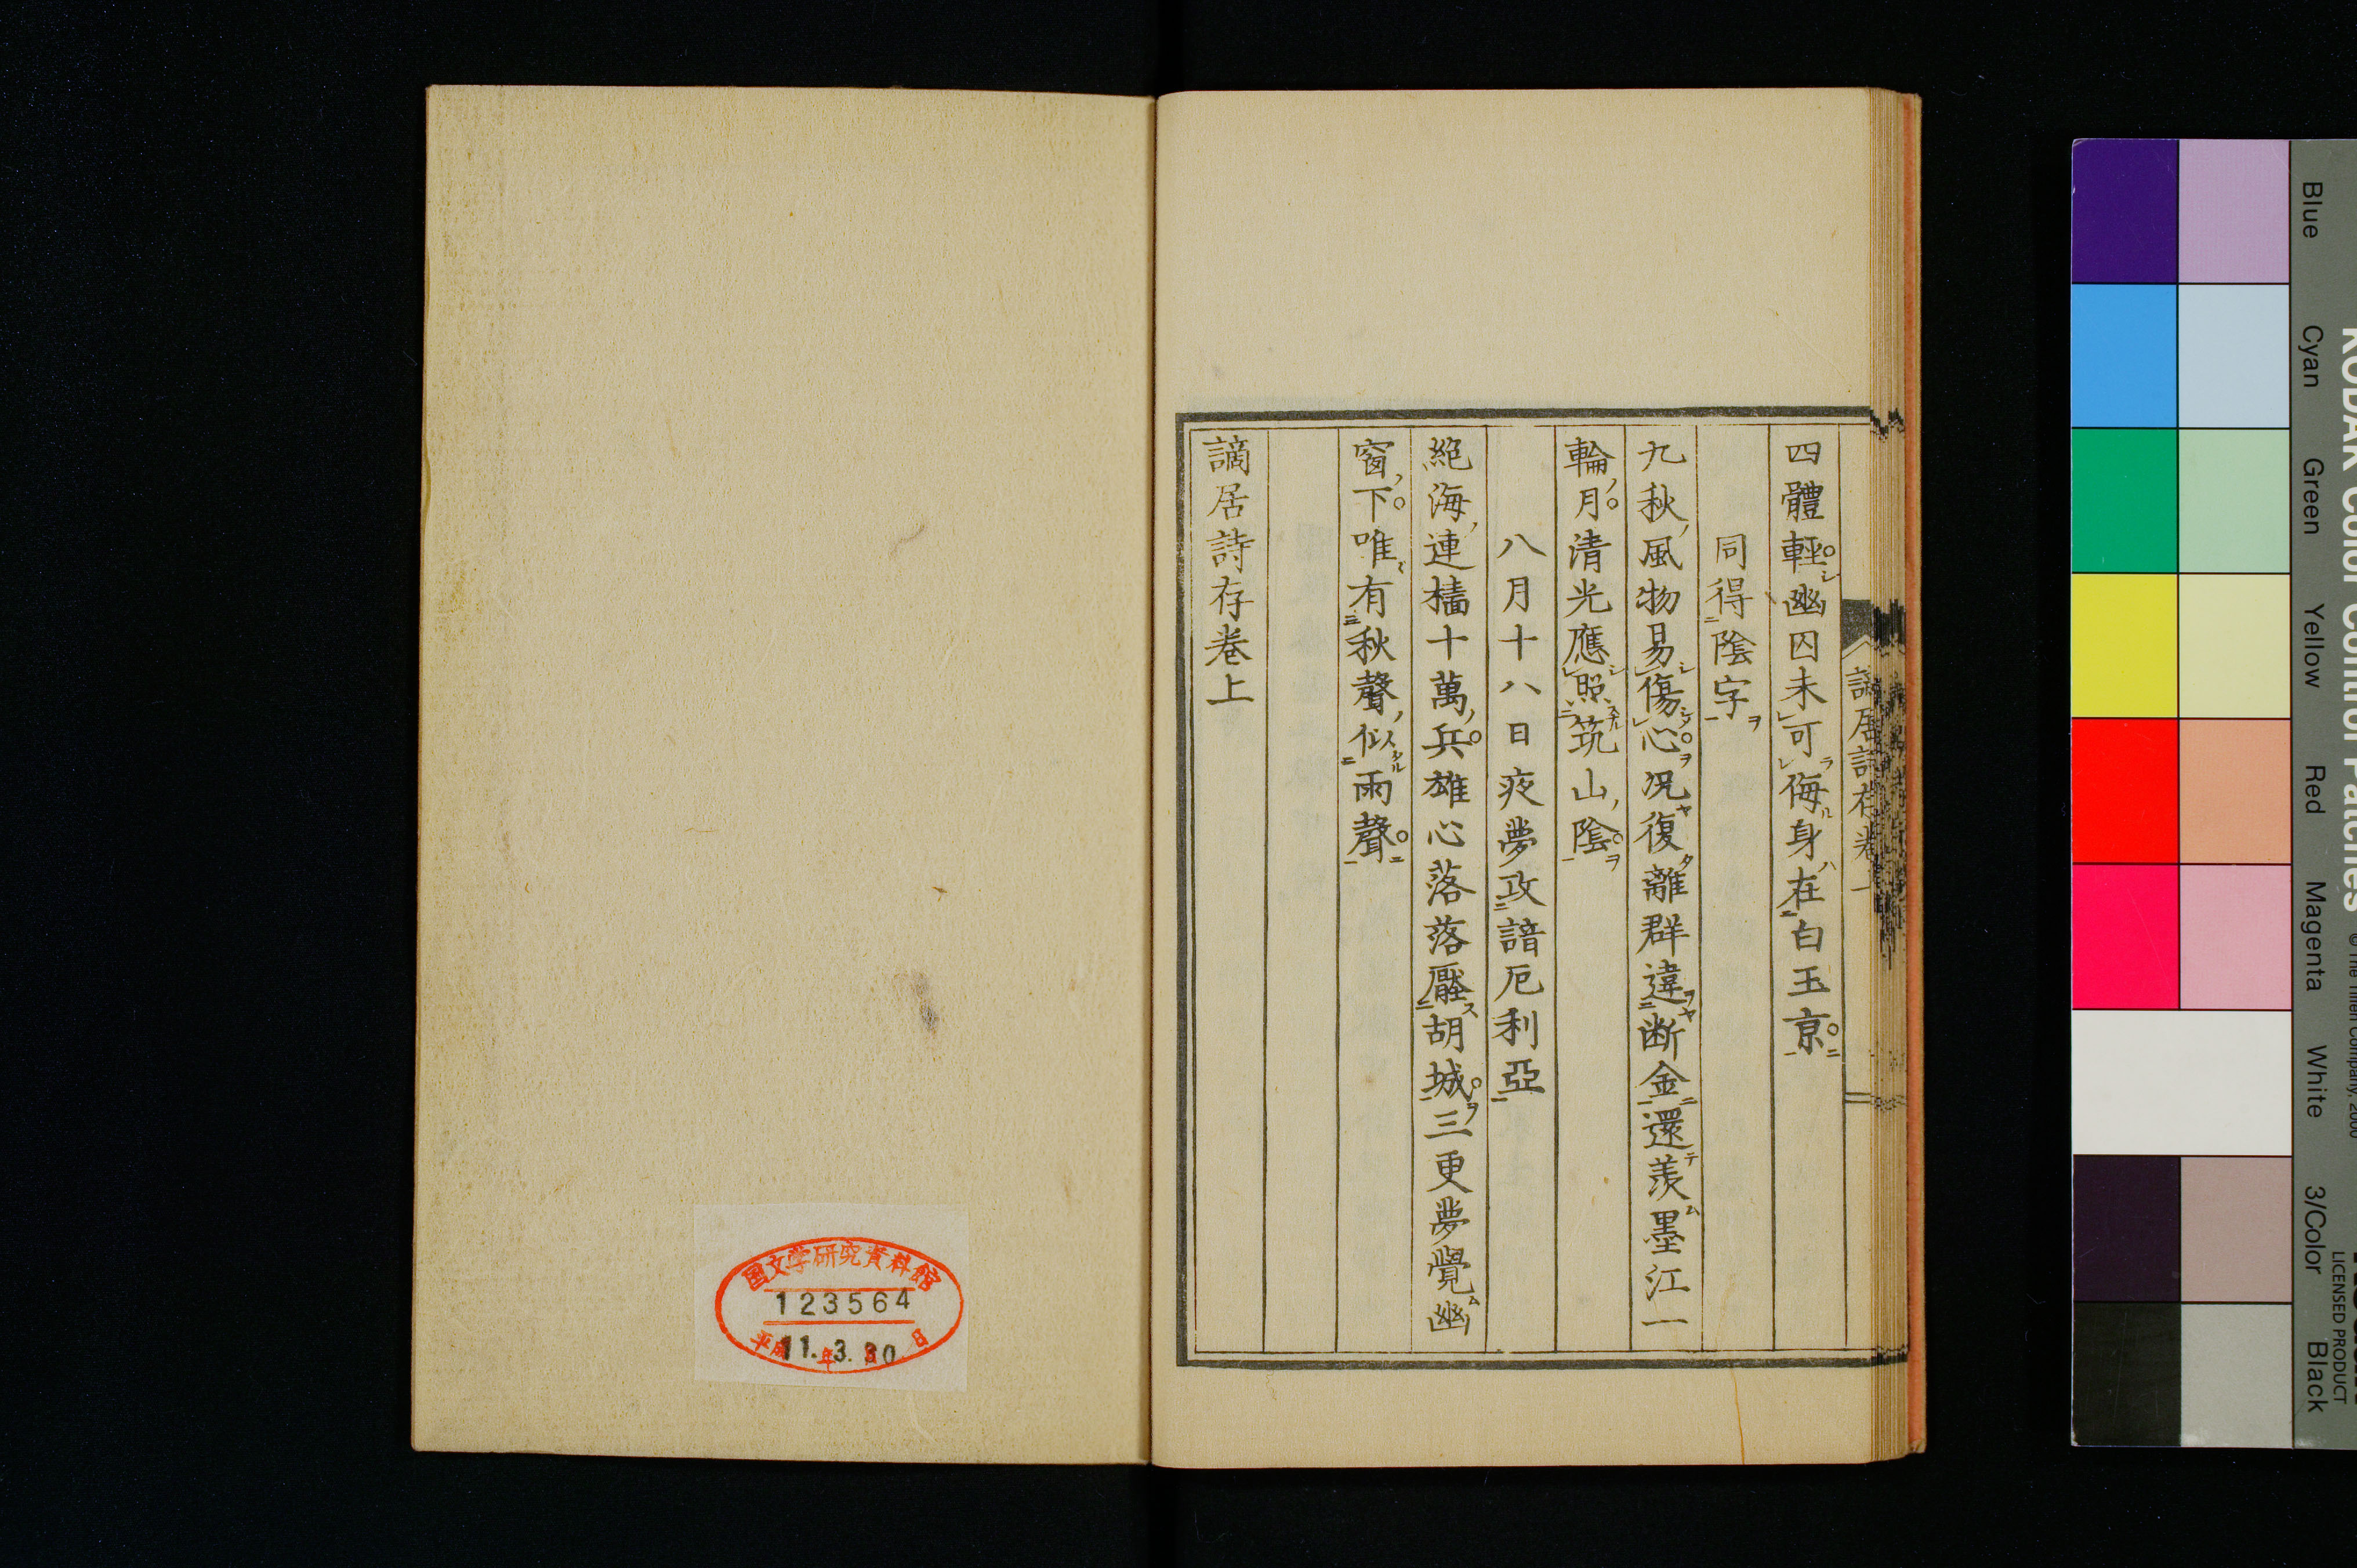 謫居詩存卷上
四體輕幽囚未可侮身在白玉京
同得陰字
九秋風物易傷心況復離群違断金還羨墨江一
輪月清光應照筑山陰
八月十八日夜夢攻諳厄利亞
絕海連檣十萬兵雄心落落壓胡城三更夢覺幽
窗下唯有秋聲似雨聲
謫居詩存卷上
国文学研究資料館
123564
平成11年3月30日
Blue
Cyan
Green
Yellow
Red
Magenta
White
3/Color
Black
KODAK Color Control Patches
LICENSED PRODUCT